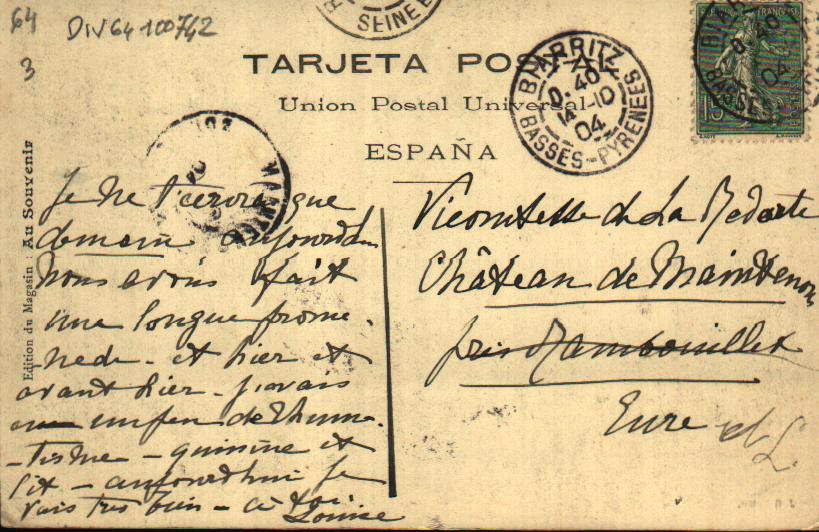 64
DIV 64 100742
3
SEINE
TARJETA POSTAL
Union Postal Universal
ESPAÑA
BIARRITZ
0.40
14-10
04
BASSES-PYRENEES
BASSES
04
15
Edition du Magasin : Au Souvenir
Je ne t'écrirai que
demain aujourd'hui
nous avons fait
une longue prome-
nade - et hier et
avant hier - j'avais
un peu de Rhuma-
-tisme - quinine et
lit - aujourd'hui je
vais très bien - à toi
Louise
Vicomtesse de La Redorte
Château de Maintenon
près Rambouillet
Eure et L.